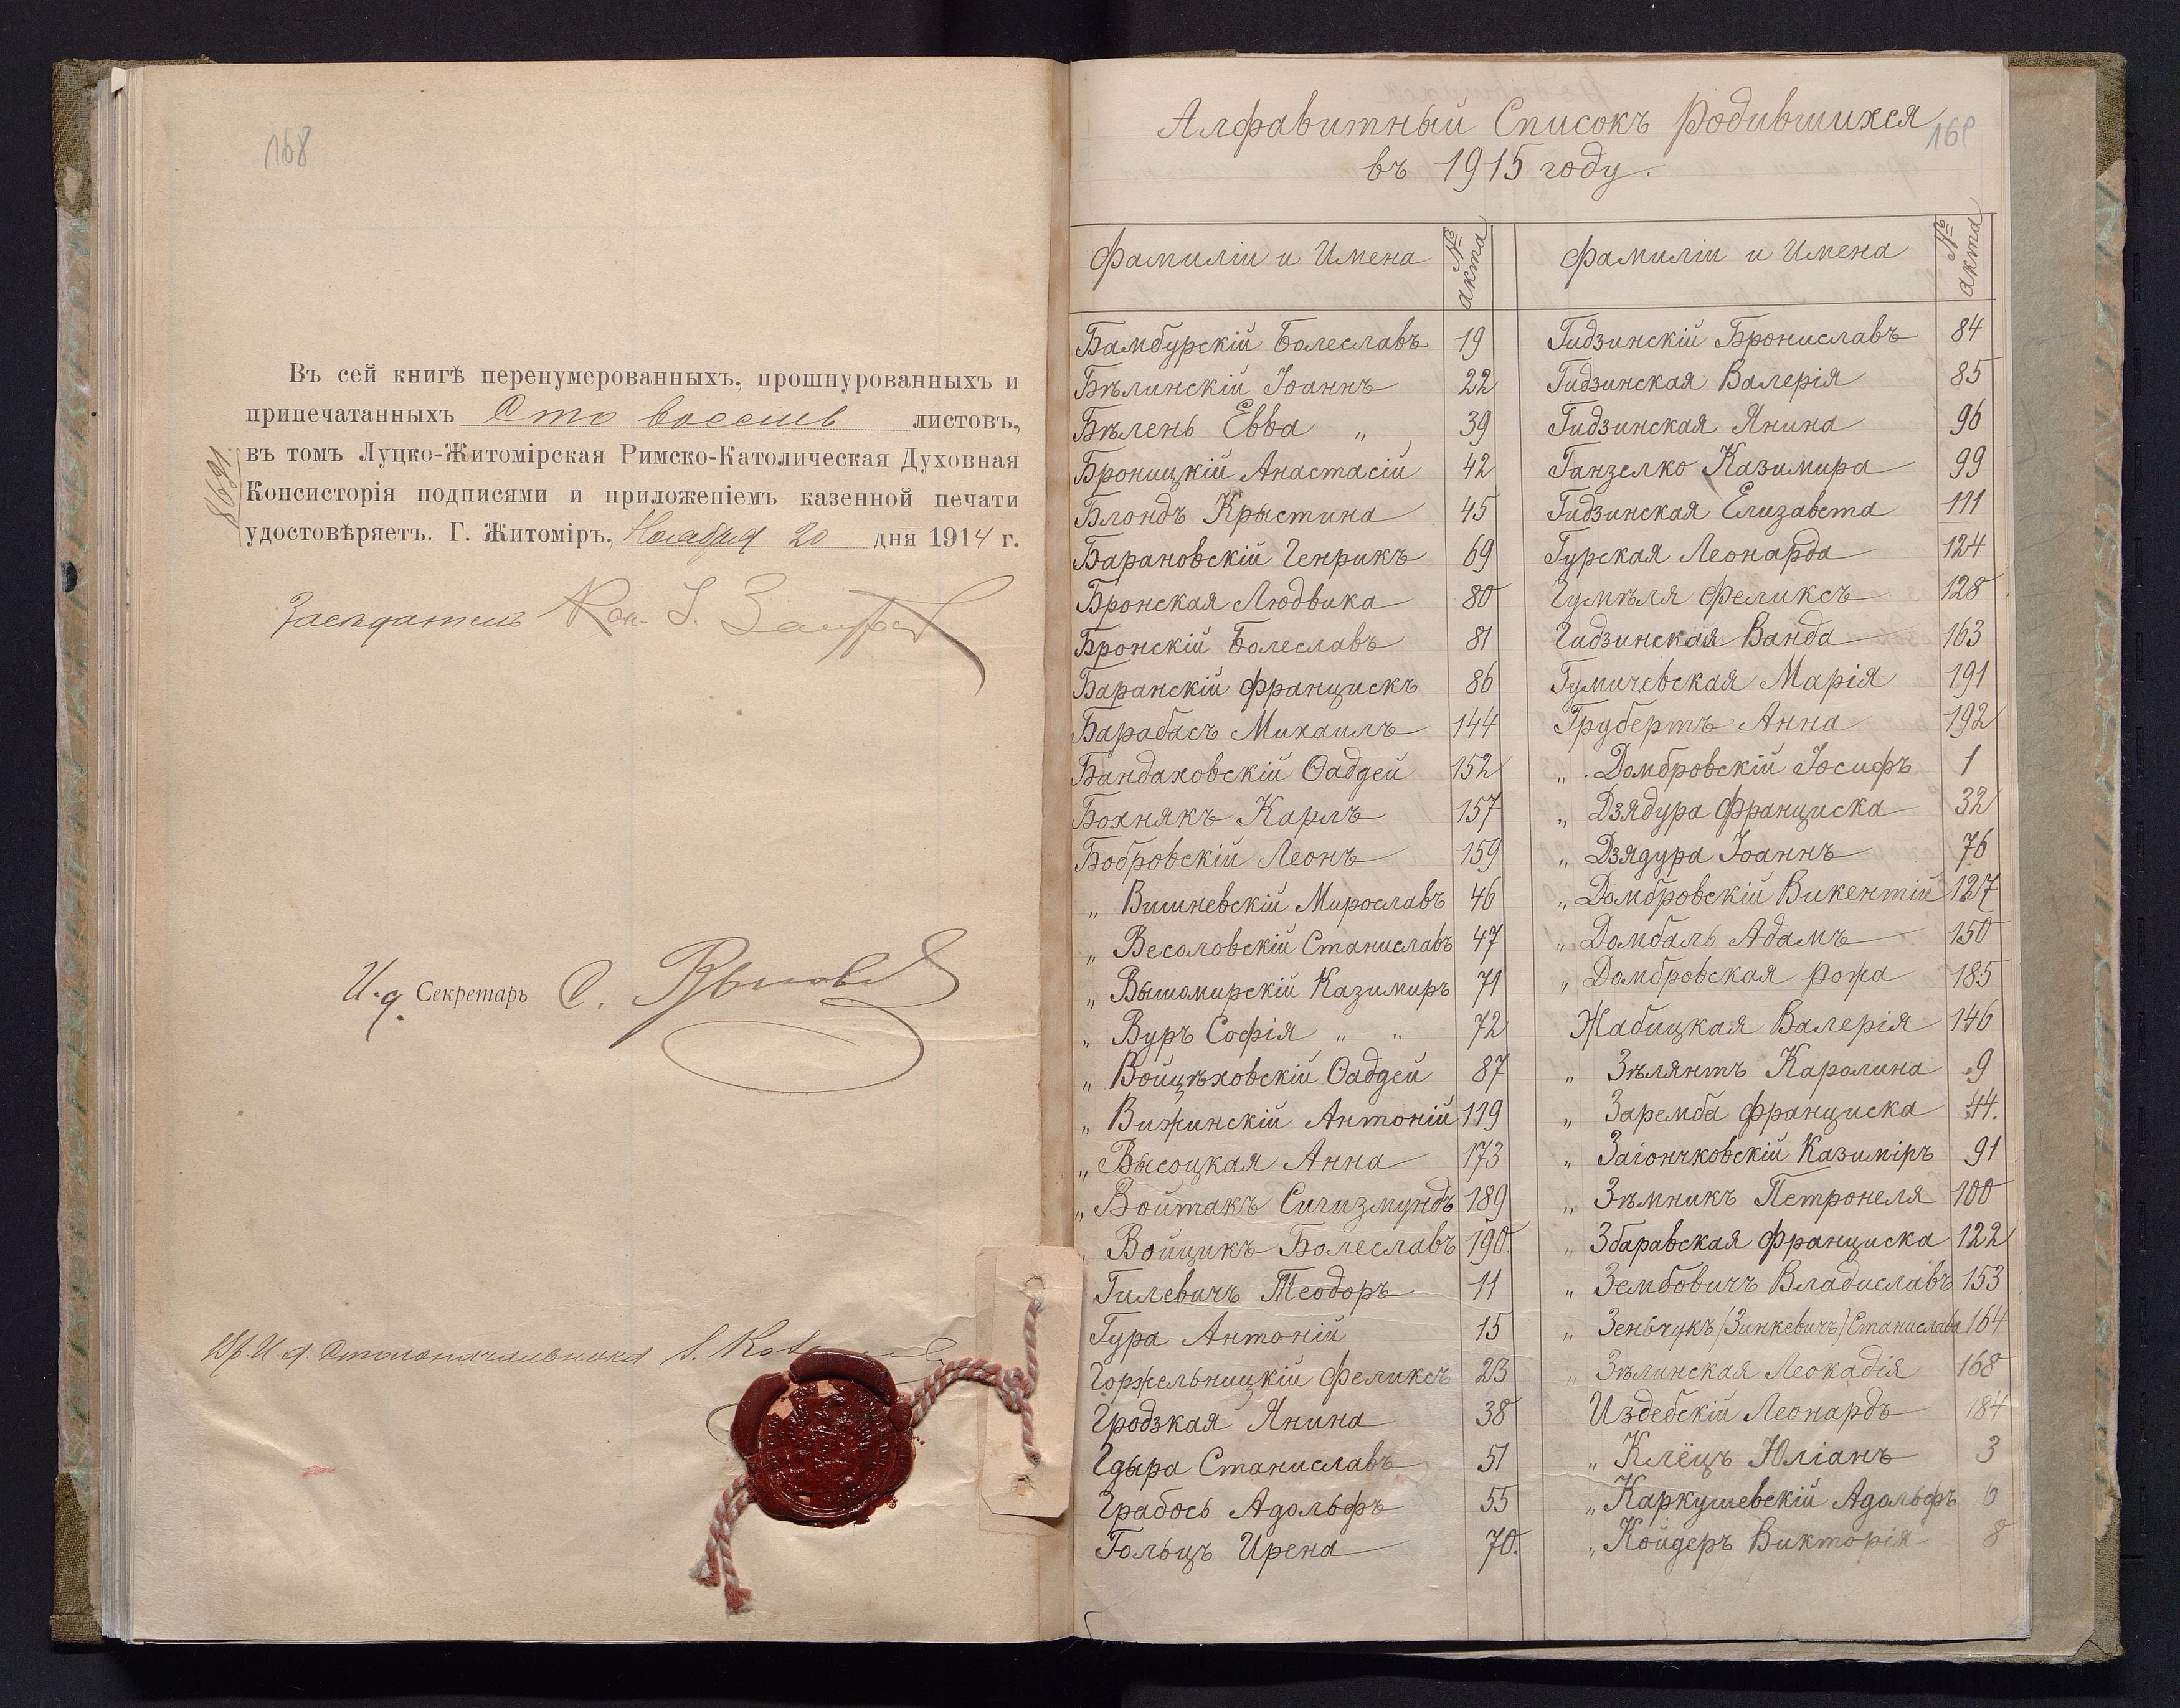 168
Въ сей книгѣ перенумерованныхъ, прошнурованныхъ и
припечатанныхъ Сто восемь листовъ,
въ томъ Луцко-Житомірская Римско-Католическая Духовная
Консисторія подписями и приложеніемъ казенной печати
удостовѣряетъ. Г. Житоміръ, Ноября 20 дня 1914 г.
8691.
Засѣдатель Кан. І.
И. д. Секретарь С.
Вр. И. д. Столоначальника
Алфавитный Списокъ Родившихся
въ 1915 году.
Фамиліи и Имена № акта
Бамбурскій Болеславъ 19
Бѣлинскій Іоаннъ 22
Бѣлень Евва „ 39
Броницкій Анастасій 42
Блондъ Крыстина 45
Барановскій Генрикъ 69
Бронская Людвика 80
Бронскій Болеславъ 81
Баранскій Францискъ 86
Барабасъ Михаилъ 144
Бандаховскій Ѳаддей 152
Бохнякъ Карлъ 157
Бобровскій Леонъ 159
„ Вишневскій Мирославъ 46
„ Весоловскій Станиславъ 47
„ Вытомирскій Казимиръ 71
„ Вуръ Софія „ „ 72
„ Войцѣховскій Ѳаддей 87
„ Вижинскій Антоній 119
„ Высоцкая Анна 173
„ Войтакъ Сигизмундъ 189
„ Войцикъ Болеславъ 190.
Гилевичъ Теодоръ 11
Гура Антоній 15
Горжельницкій Феликсъ 23
Гродзкая Янина 38
Гдыра Станиславъ 51
Грабось Адольфъ 55
Гольцъ Ирена 70.
Фамиліи и Имена № акта
Гидзинскій Брониславъ 84
Гидзинская Валерія 85
Гидзинская Янина 96
Ганзелко Казимира 99
Гидзинская Елизавета 111
Гурская Леонарда 124
Гумѣля Феликсъ 128
Гидзинская Ванда 163
Гумичевская Марія 191
Грубертъ Анна 192
„ Домбровскій Іосифъ 1
„ Дзядура Франциска 32
„ Дзядура Іоаннъ 76
„ Домбровскій Викентій 127
„ Домбаль Адамъ 150
„ Домбровская Рожа 185
Жабицкая Валерія 146
„ Зѣлянтъ Каролина 9
„ Заремба Франциска 44.
„ Заіончковскій Казиміръ 91
„ Зѣмникъ Петронеля 100
„ Збаравская Франциска 122
„ Зембовичъ Владиславъ 153
„ Зеньчукъ (Зинкевичъ) Станислава 164
„ Зѣлинская Леокадія 168
Издебскій Леонардъ 184
„ Клёцъ Юліанъ 3
„ Каркушевскій Адольфъ 6
„ Койдеръ Викторія 8